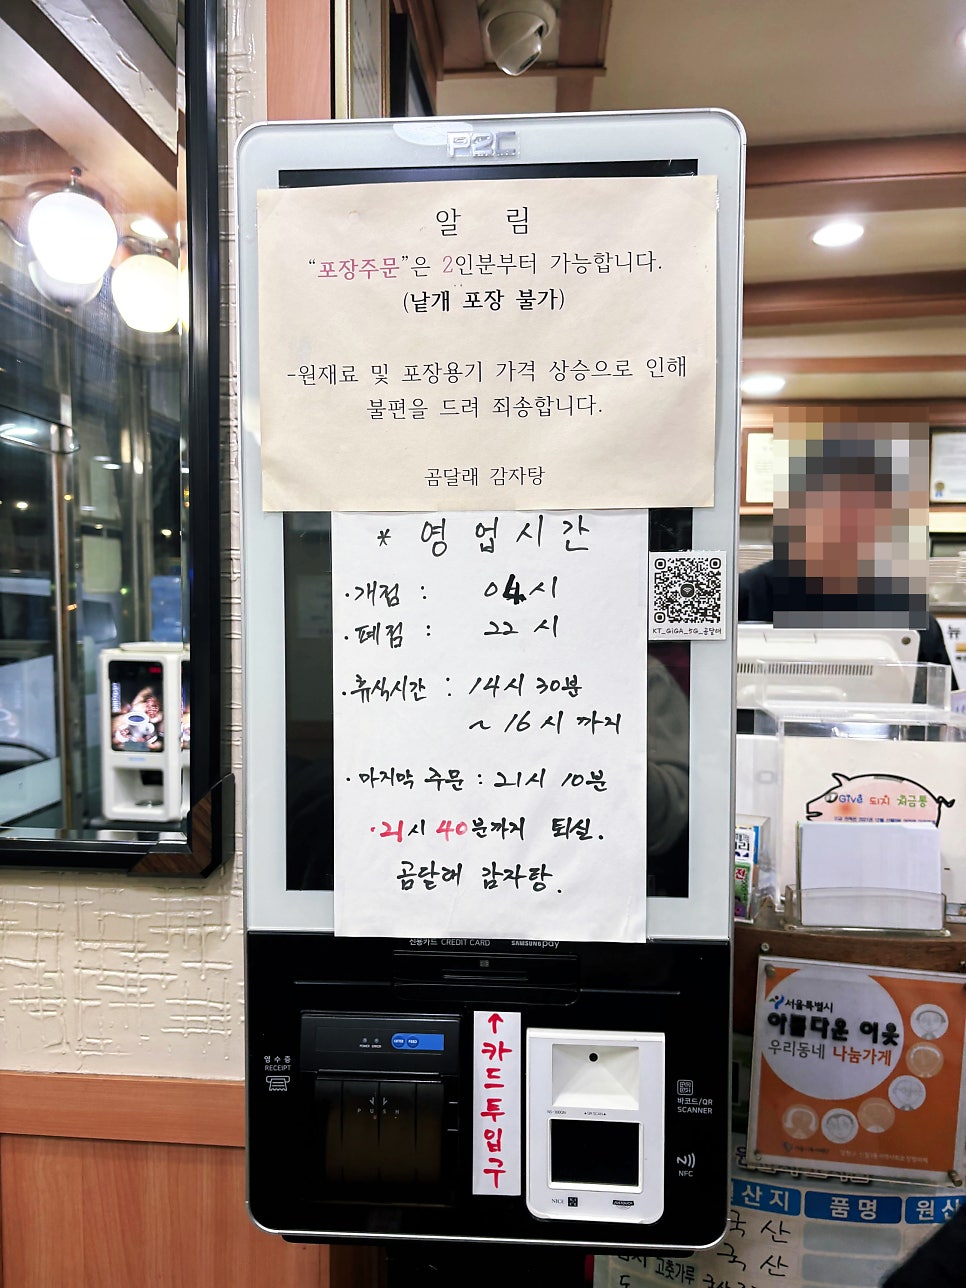 P2C
알 림
“포장주문”은 2인분부터 가능합니다.
(낱개 포장 불가)
-원재료 및 포장용기 가격 상승으로 인해
불편을 드려 죄송합니다.
곰달래 감자탕
* 영업시간
·개점 : 04시
·폐점 : 22시
·휴식시간 : 14시 30분
~ 16시 까지
·마지막 주문 : 21시 10분
·21시 40분까지 퇴실.
곰달래 감자탕.
KT_GiGA_5G_곰달래
신용카드 CREDIT CARD SAMSUNG pay
영수증
RECEIPT
PUSH
↑카드투입구
바코드/QR
SCANNER
NFC
NICE
Give 돼지 저금통
서울특별시
아름다운 이웃
우리동네 나눔가게
산지 품명 원산
국산
국산
고춧가루